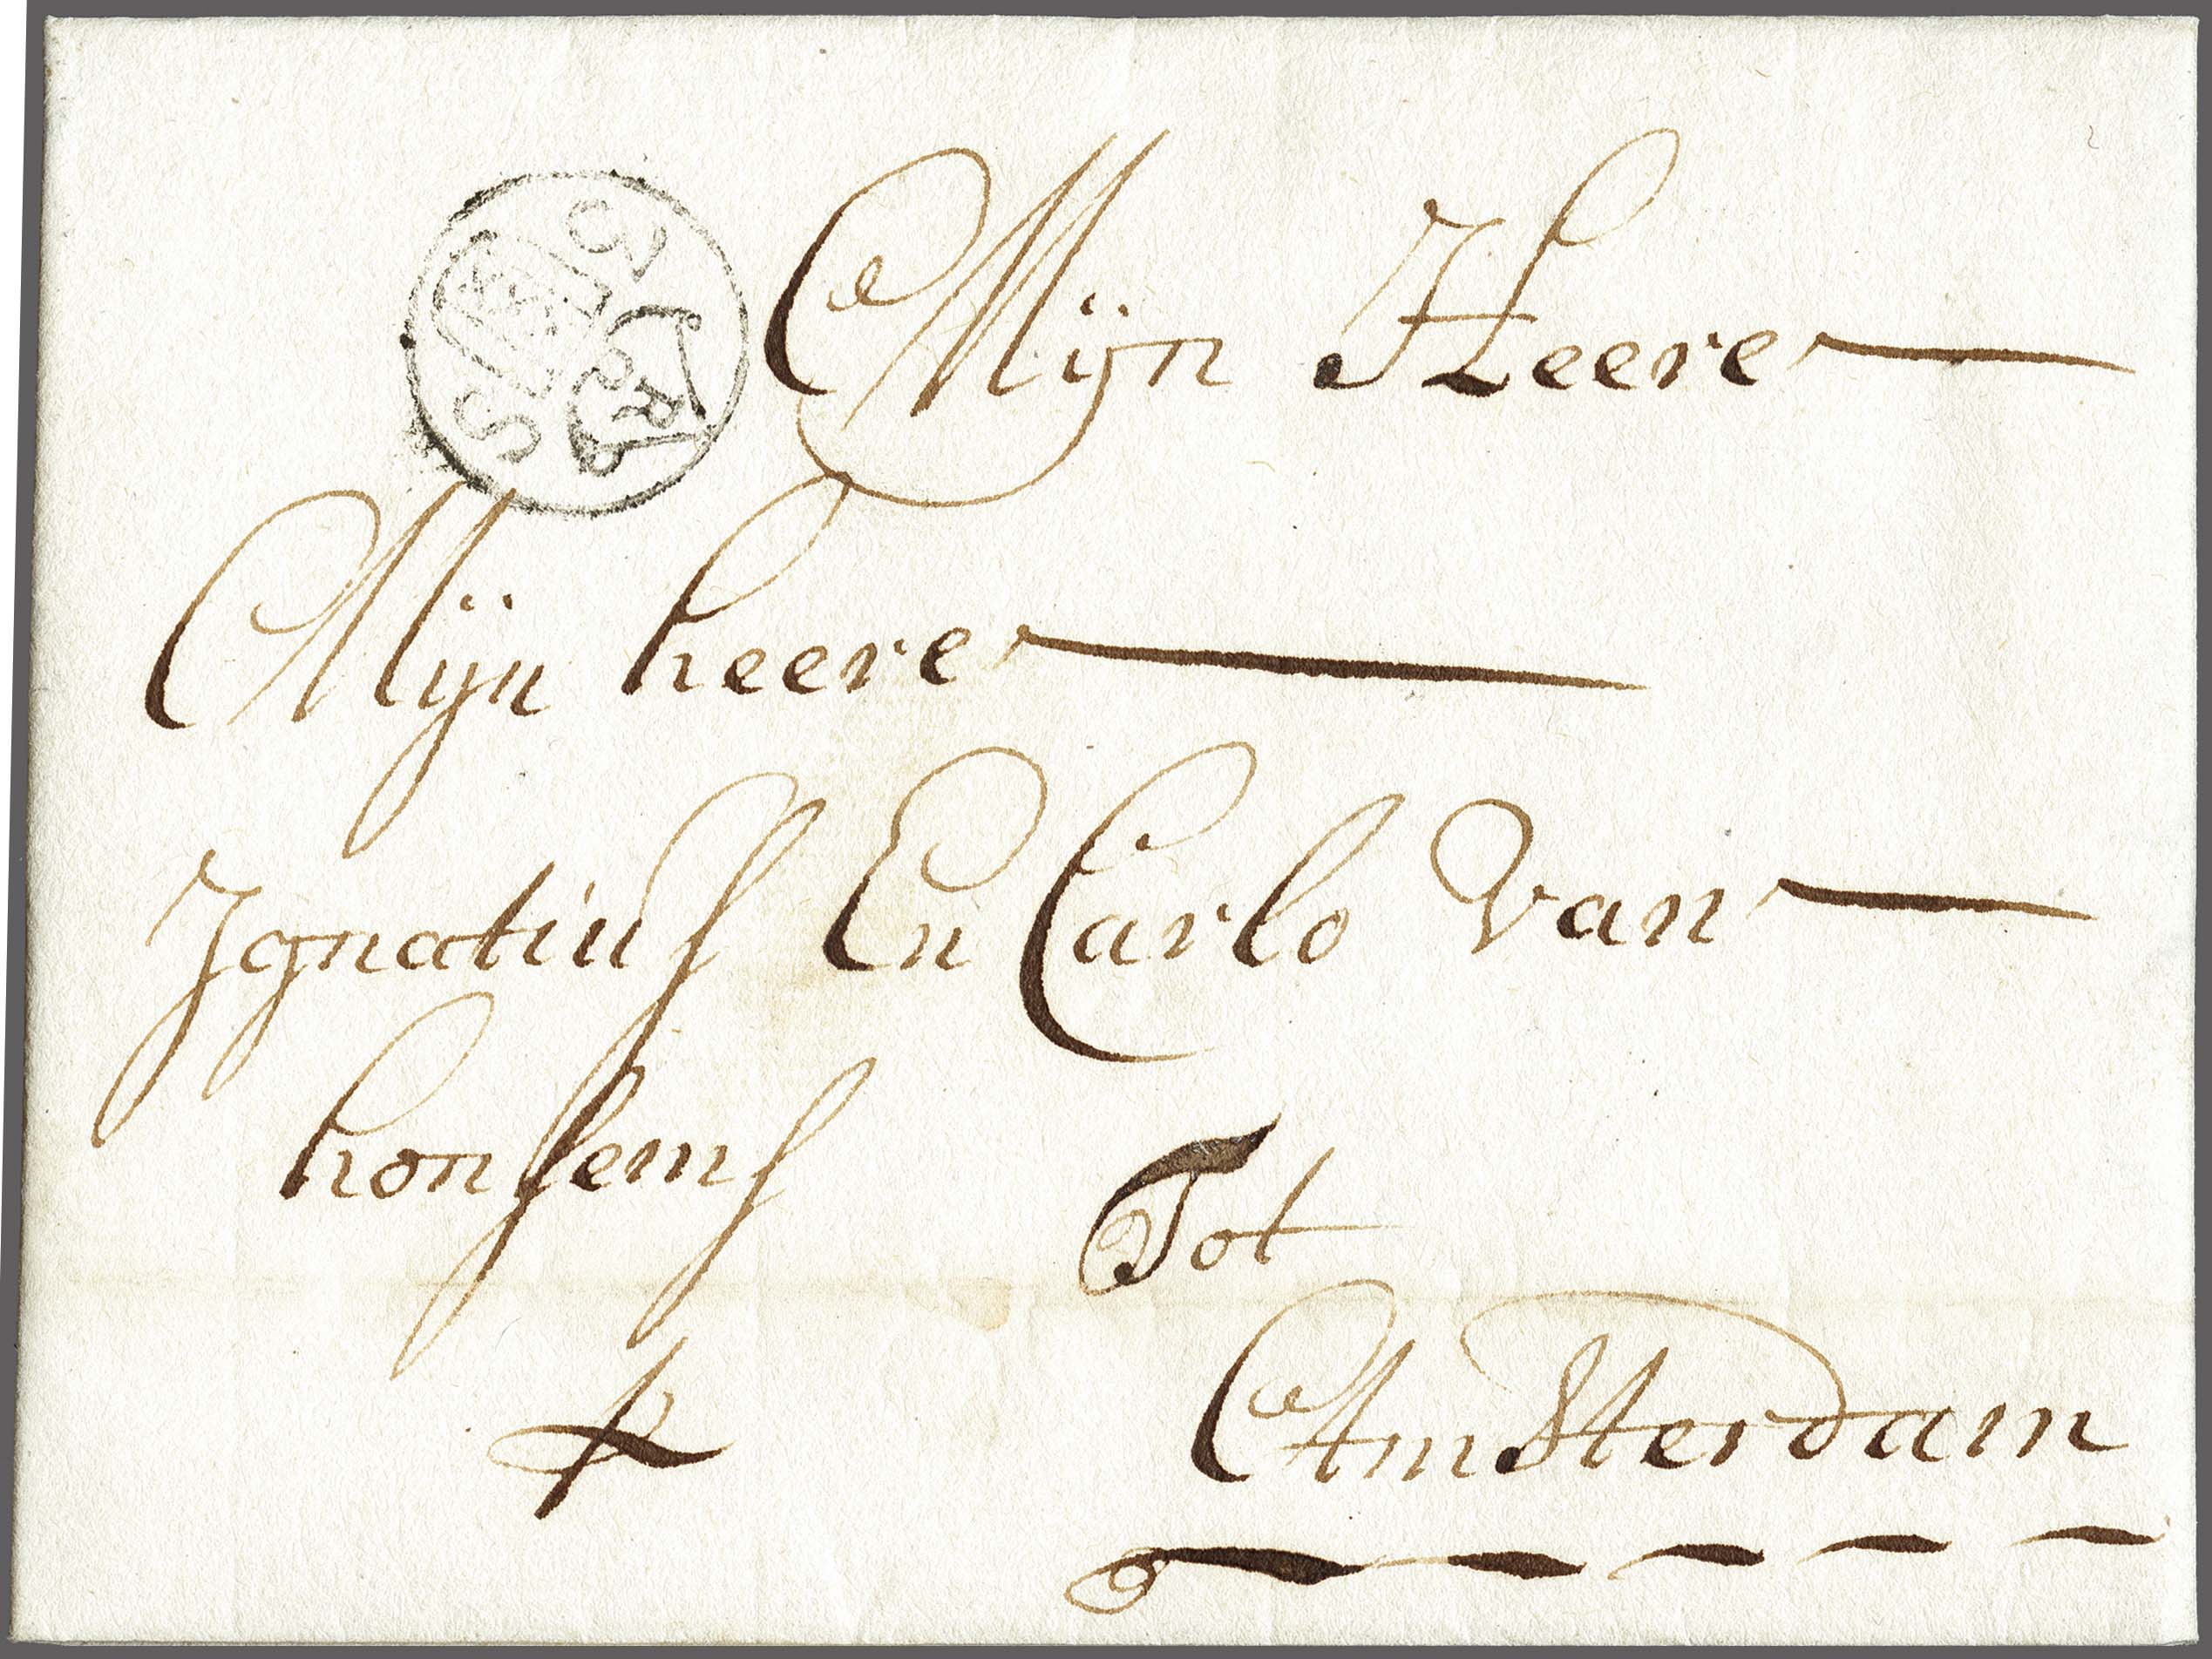 Mijn Heere
Mijn heere
Ignatius En Carlo Van
honsems
Tot
AmSterdam